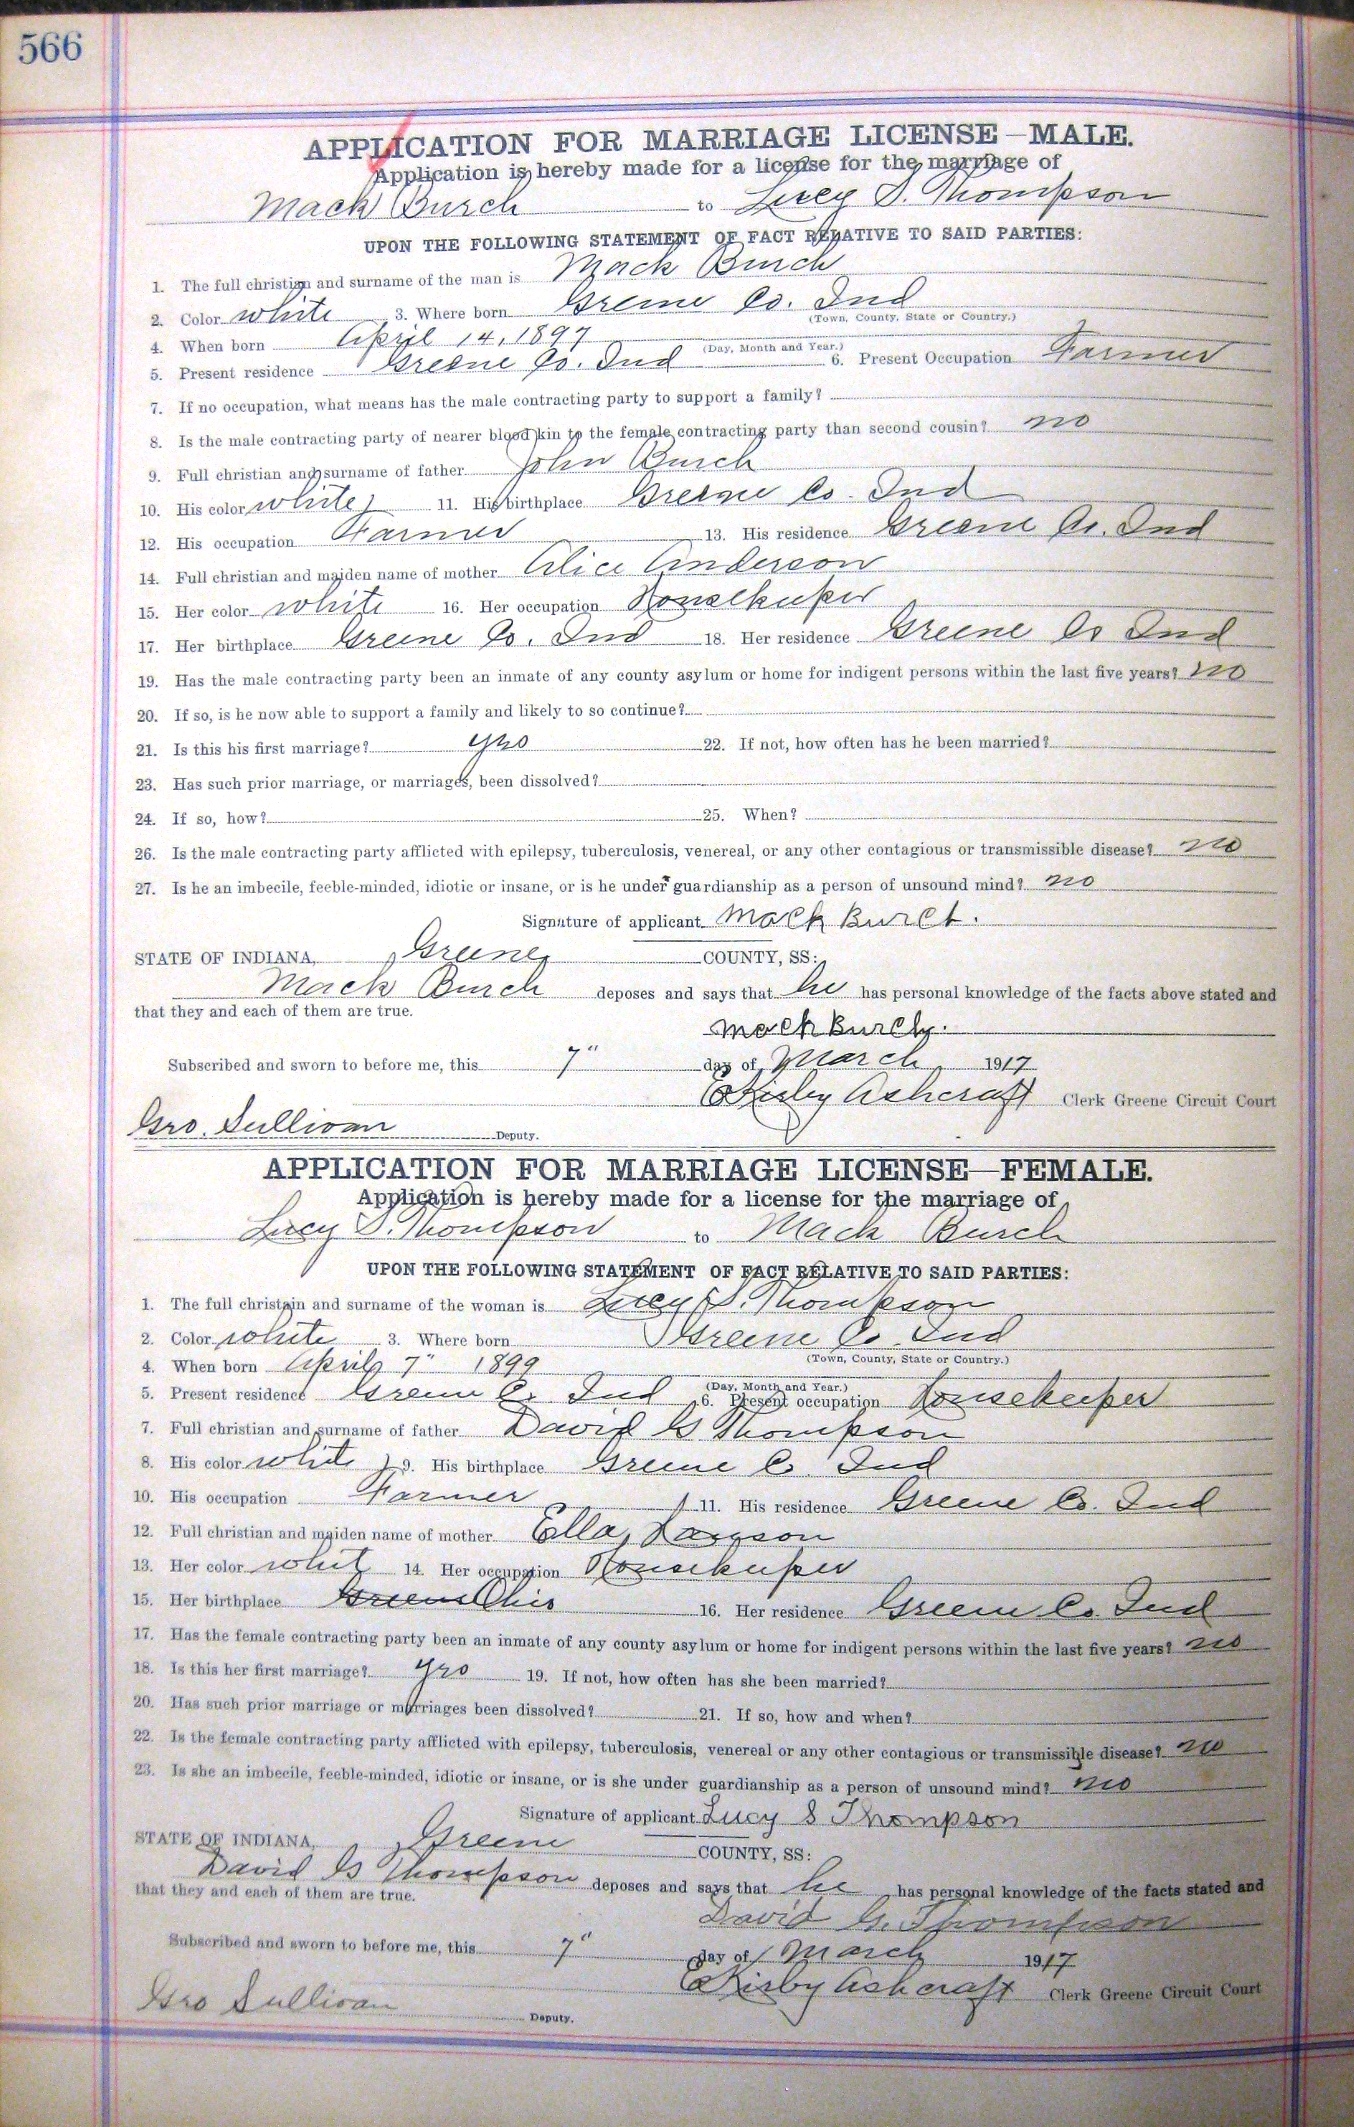 566
APPLICATION FOR MARRIAGE LICENSE—MALE.
Application is hereby made for a license for the marriage of
Mack Burch to Lucy S. Thompson
UPON THE FOLLOWING STATEMENT OF FACT RELATIVE TO SAID PARTIES:
1. The full christian and surname of the man is Mack Burch
2. Color white 3. Where born Greene Co. Ind
(Town, County, State or Country.)
4. When born April 14, 1897
(Day, Month and Year.)
5. Present residence Greene Co. Ind 6. Present Occupation Farmer
7. If no occupation, what means has the male contracting party to support a family?
8. Is the male contracting party of nearer blood kin to the female contracting party than second cousin? no
9. Full christian and surname of father John Burch
10. His color white 11. His birthplace Greene Co. Ind
12. His occupation Farmer 13. His residence Greene Co. Ind
14. Full christian and maiden name of mother Alice Anderson
15. Her color white 16. Her occupation Housekeeper
17. Her birthplace Greene Co. Ind 18. Her residence Greene Co Ind
19. Has the male contracting party been an inmate of any county asylum or home for indigent persons within the last five years? no
20. If so, is he now able to support a family and likely to so continue?
21. Is this his first marriage? yes 22. If not, how often has he been married?
23. Has such prior marriage, or marriages, been dissolved?
24. If so, how? 25. When?
26. Is the male contracting party afflicted with epilepsy, tuberculosis, venereal, or any other contagious or transmissible disease? no
27. Is he an imbecile, feeble-minded, idiotic or insane, or is he under guardianship as a person of unsound mind? no
Signature of applicant Mack Burch.
STATE OF INDIANA, Greene COUNTY, SS:
Mack Burch deposes and says that he has personal knowledge of the facts above stated and
that they and each of them are true.
Mack Burch.
Subscribed and sworn to before me, this 7" day of March 1917
E Kirby Ashcraft Clerk Greene Circuit Court
Geo. Sullivan Deputy.
APPLICATION FOR MARRIAGE LICENSE—FEMALE.
Application is hereby made for a license for the marriage of
Lucy S. Thompson to Mack Burch
UPON THE FOLLOWING STATEMENT OF FACT RELATIVE TO SAID PARTIES:
1. The full christain and surname of the woman is Lucy S. Thompson
2. Color white 3. Where born Greene Co. Ind
(Town, County, State or Country.)
4. When born April 7" 1899
(Day, Month and Year.)
5. Present residence Greene C. Ind 6. Present occupation Housekeeper
7. Full christian and surname of father David G Thompson
8. His color white 9. His birthplace Greene C. Ind
10. His occupation Farmer 11. His residence Greene Co. Ind
12. Full christian and maiden name of mother Ella
13. Her color whit 14. Her occupation Housekeeper
15. Her birthplace Greene Ohio 16. Her residence Greene Co. Ind
17. Has the female contracting party been an inmate of any county asylum or home for indigent persons within the last five years? no
18. Is this her first marriage? yes 19. If not, how often has she been married?
20. Has such prior marriage or marriages been dissolved? 21. If so, how and when?
22. Is the female contracting party afflicted with epilepsy, tuberculosis, venereal or any other contagious or transmissible disease? no
23. Is she an imbecile, feeble-minded, idiotic or insane, or is she under guardianship as a person of unsound mind? no
Signature of applicant Lucy S Thompson
STATE OF INDIANA, Greene COUNTY, SS:
David G Thompson deposes and says that he has personal knowledge of the facts stated and
that they and each of them are true.
David G. Thompson
Subscribed and sworn to before me, this 7" day of March 1917
E Kirby Ashcraft Clerk Greene Circuit Court
Geo Sullivan Deputy.